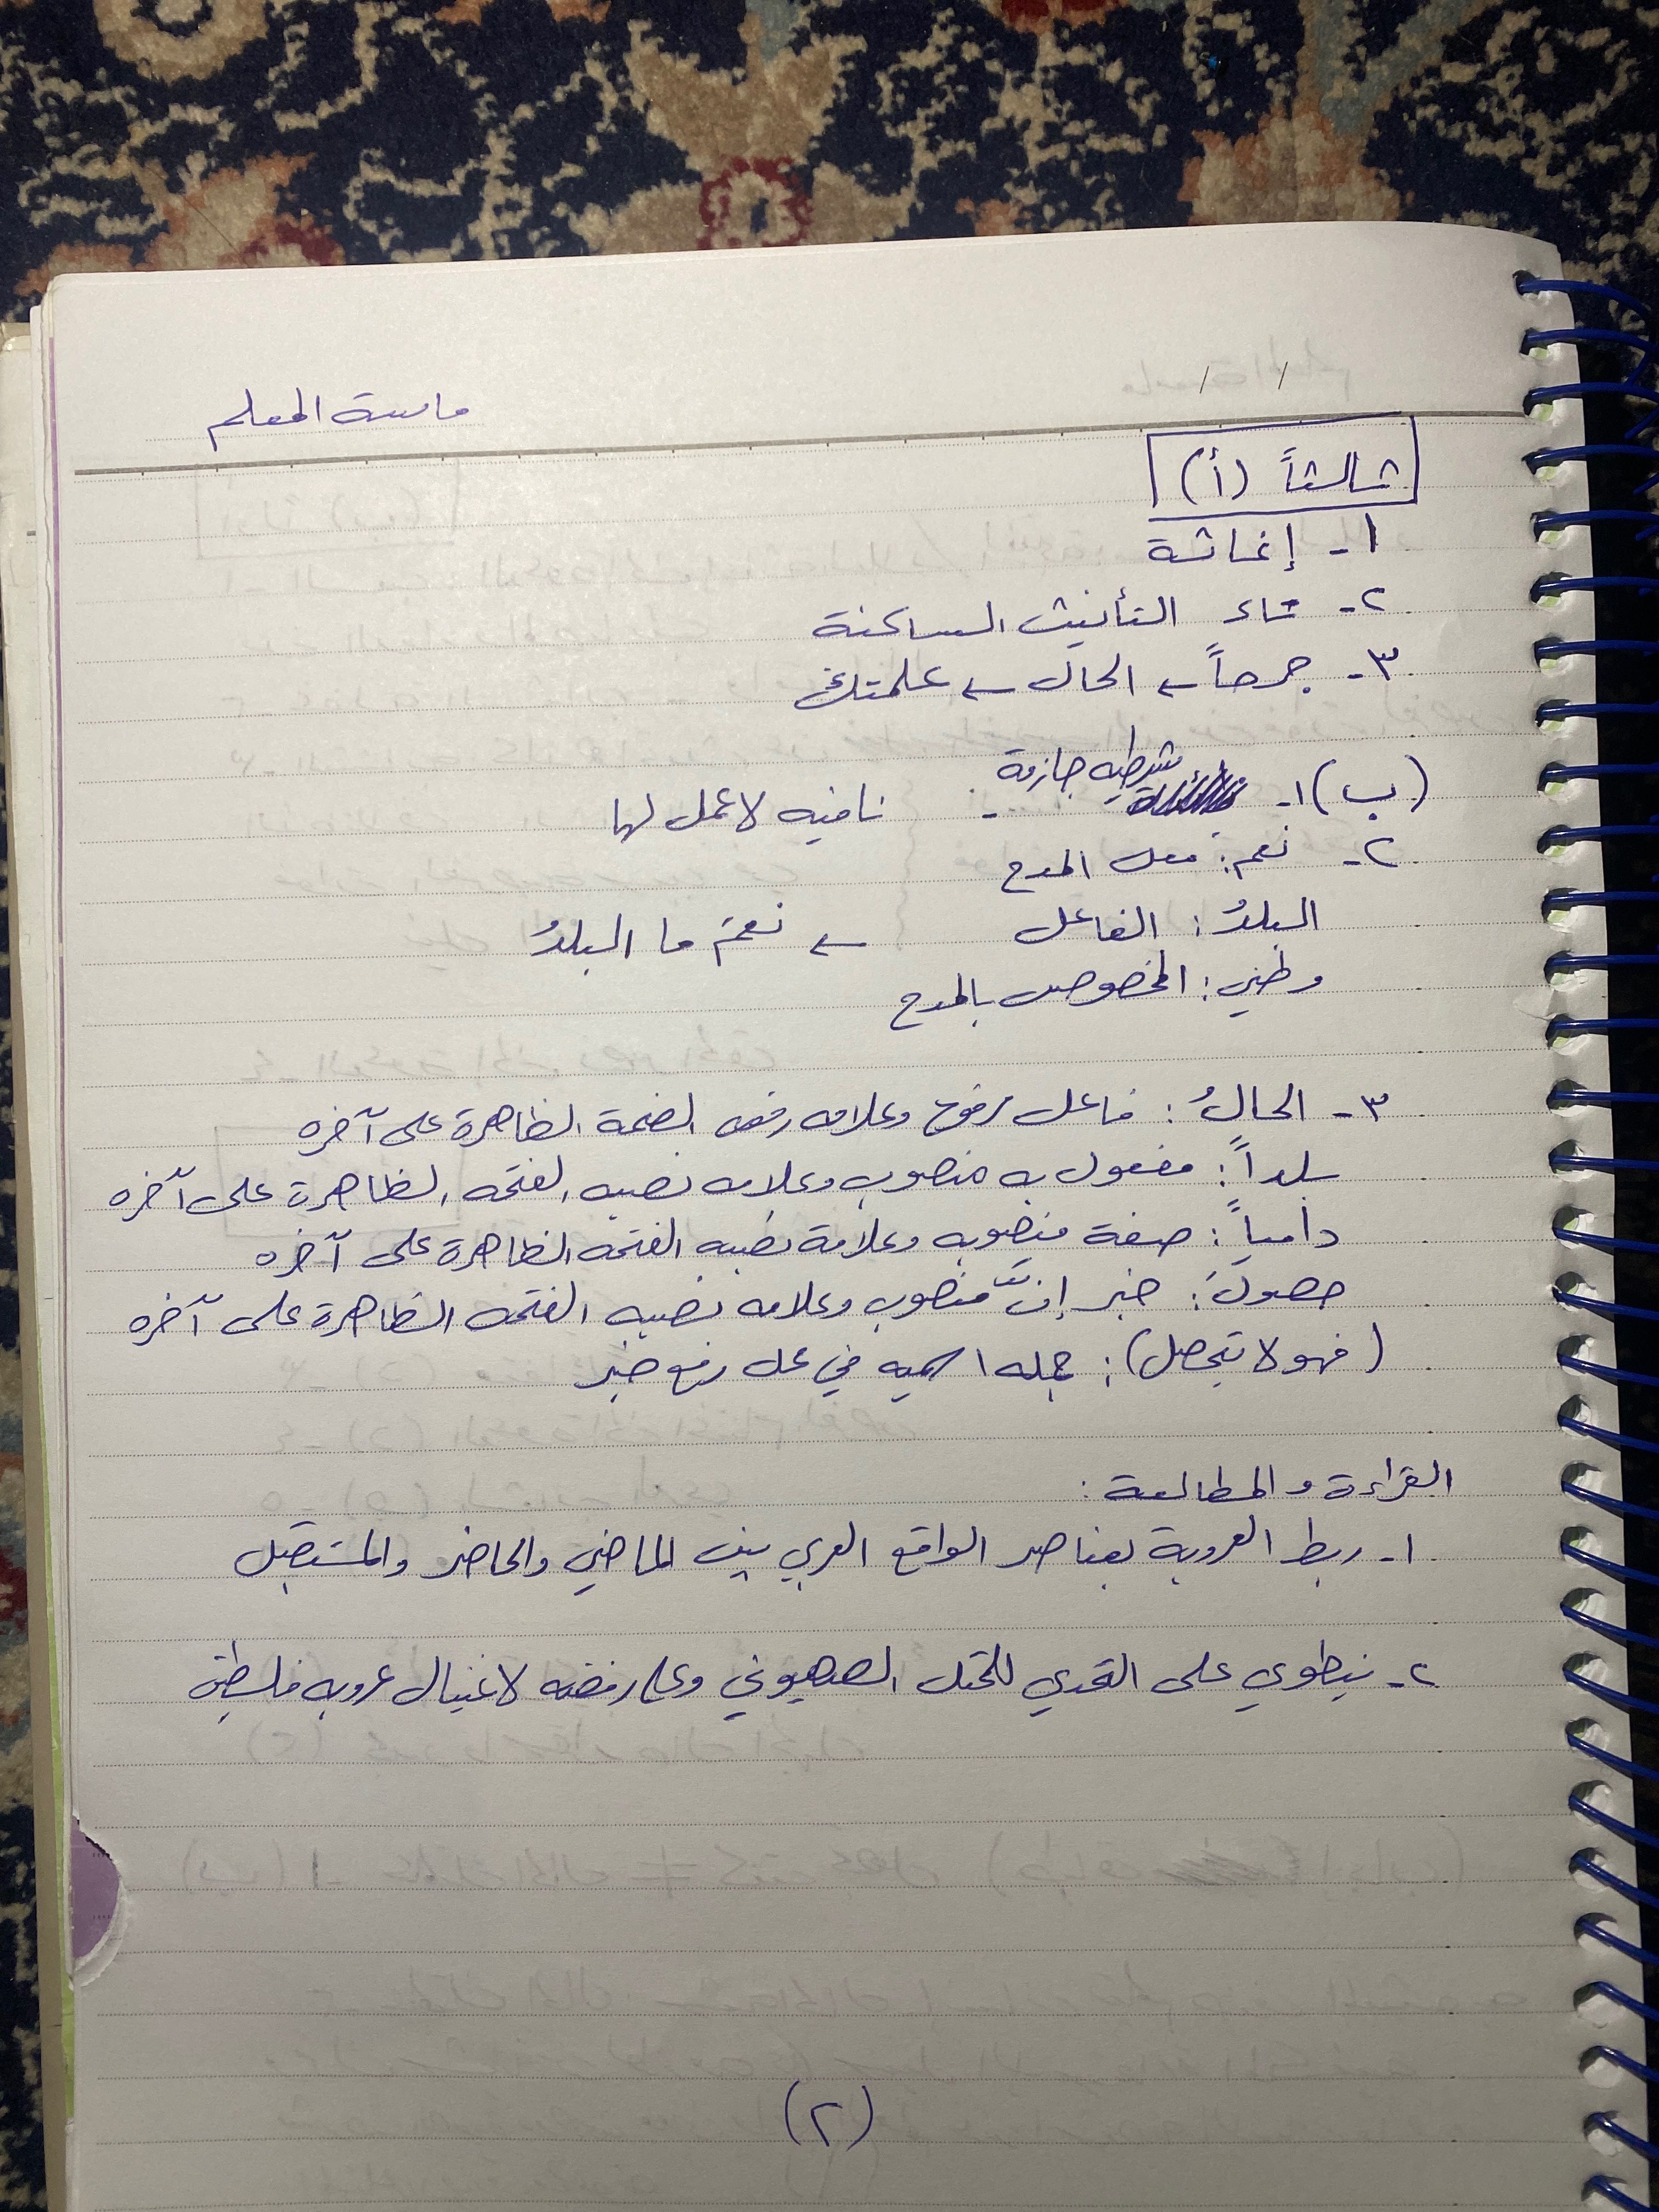 ماسة المعلم
/ /
ثالثاً (أ)
١- إغاثة
٢- تاء التأنيث الساكنة
٣- جرحاً ← الحال ← علمتك
(ب) ١- شرطيه جازمة - نافيه لا عمل لها
٢- نعم: فعل المدح
البلدُ: الفاعل ← نعمَ ما البلدُ
وطني: المخصوص بالمدح
٣- الحالُ: فاعل مرفوع وعلامه رفعه الضمة الظاهرة على آخره
بلداً: مفعول به منصوب وعلامه نصبه الفتحه الظاهرة على آخره
دامياً: صفة منصوبه وعلامة نصبه الفتحه الظاهرة على آخره
حصولَ: خبر إنَّ منصوب وعلامه نصبه الفتحه الظاهرة على آخره
(فهو لا يحصل): جمله اسميه في محل رفع خبر
القراءة والمطالعة:
١- ربط العروبة بعناصر الواقع العربي بين الماضي والحاضر والمستقبل
٢- ينطوي على التحدي للمحتل الصهيوني وعلى رفضه لاغتيال عروبه فلسطين
(٢)